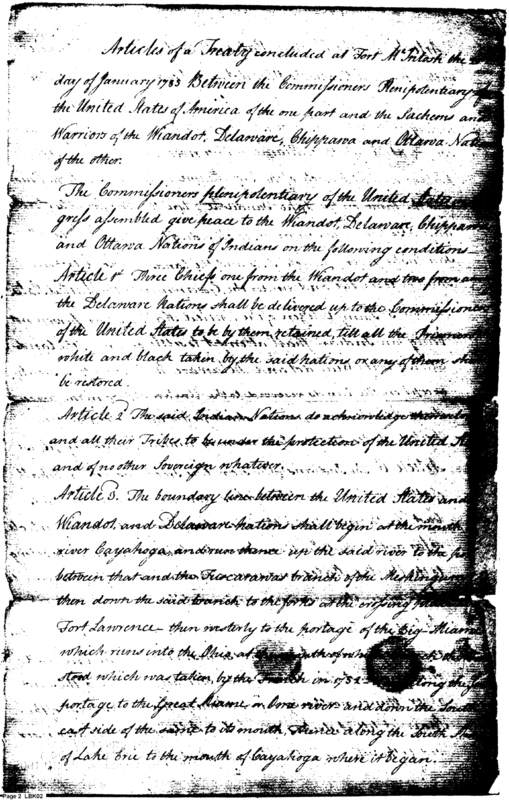 Articles of a Treaty concluded at Fort McIntosh the
day of January 1785 Between the Commissioners Plenipotentiary
the United States of America of the one part and the Sachems and
Warriors of the Wiandot, Delaware, Chippawa and Ottawa Nations
of the other.
The Commissioners plenipotentiary of the United States
gress assembled give peace to the Wiandot, Delaware, Chippawa
and Ottawa Nations of Indians on the following conditions
Article 1st Three Chiefs one from the Wiandot and two from
the Delaware Nations shall be delivered up to the Commissioners
of the United States to be by them retained till all the Prisoners
white and black taken by the said nations or any of them
be restored.
Article 2 The said Indian Nations do acknowledge
and all their Tribes to be under the protection of the United
and of no other Sovereign whatever.
Article 3. The boundary line between the United States and
Wiandot and Delaware Nations shall begin at the mouth
river Cayahoga and run thence up the said river to the
between that and the Tuscarawas branch of the Meskingum
then down the said branch to the forks at the crossing
Fort Lawrence - then westerly to the portage of the Big Miami
which runs into the Ohio, at
stood which was taken by the French in 1752 along the
portage to the Great Miami or Ome river and down the
east side of the same to its mouth, thence along the South
of Lake Erie to the mouth of Cayahoga where it began.
Page 2 LBK02